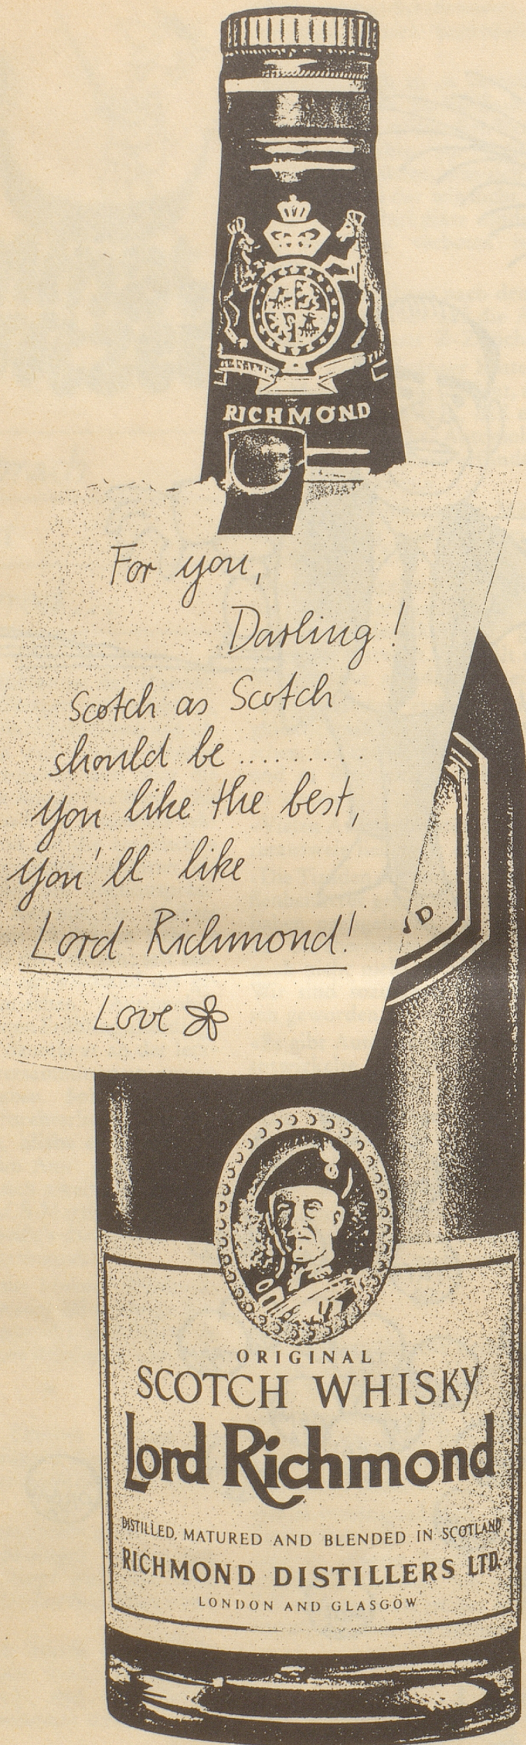 RICHMOND
For you,
Darling!
Scotch as Scotch
should be ..........
you like the best,
you'll like
Lord Richmond!
Love
ND
ORIGINAL
SCOTCH WHISKY
Lord Richmond
DISTILLED, MATURED AND BLENDED IN SCOTLAND
RICHMOND DISTILLERS LTD.
LONDON AND GLASGOW